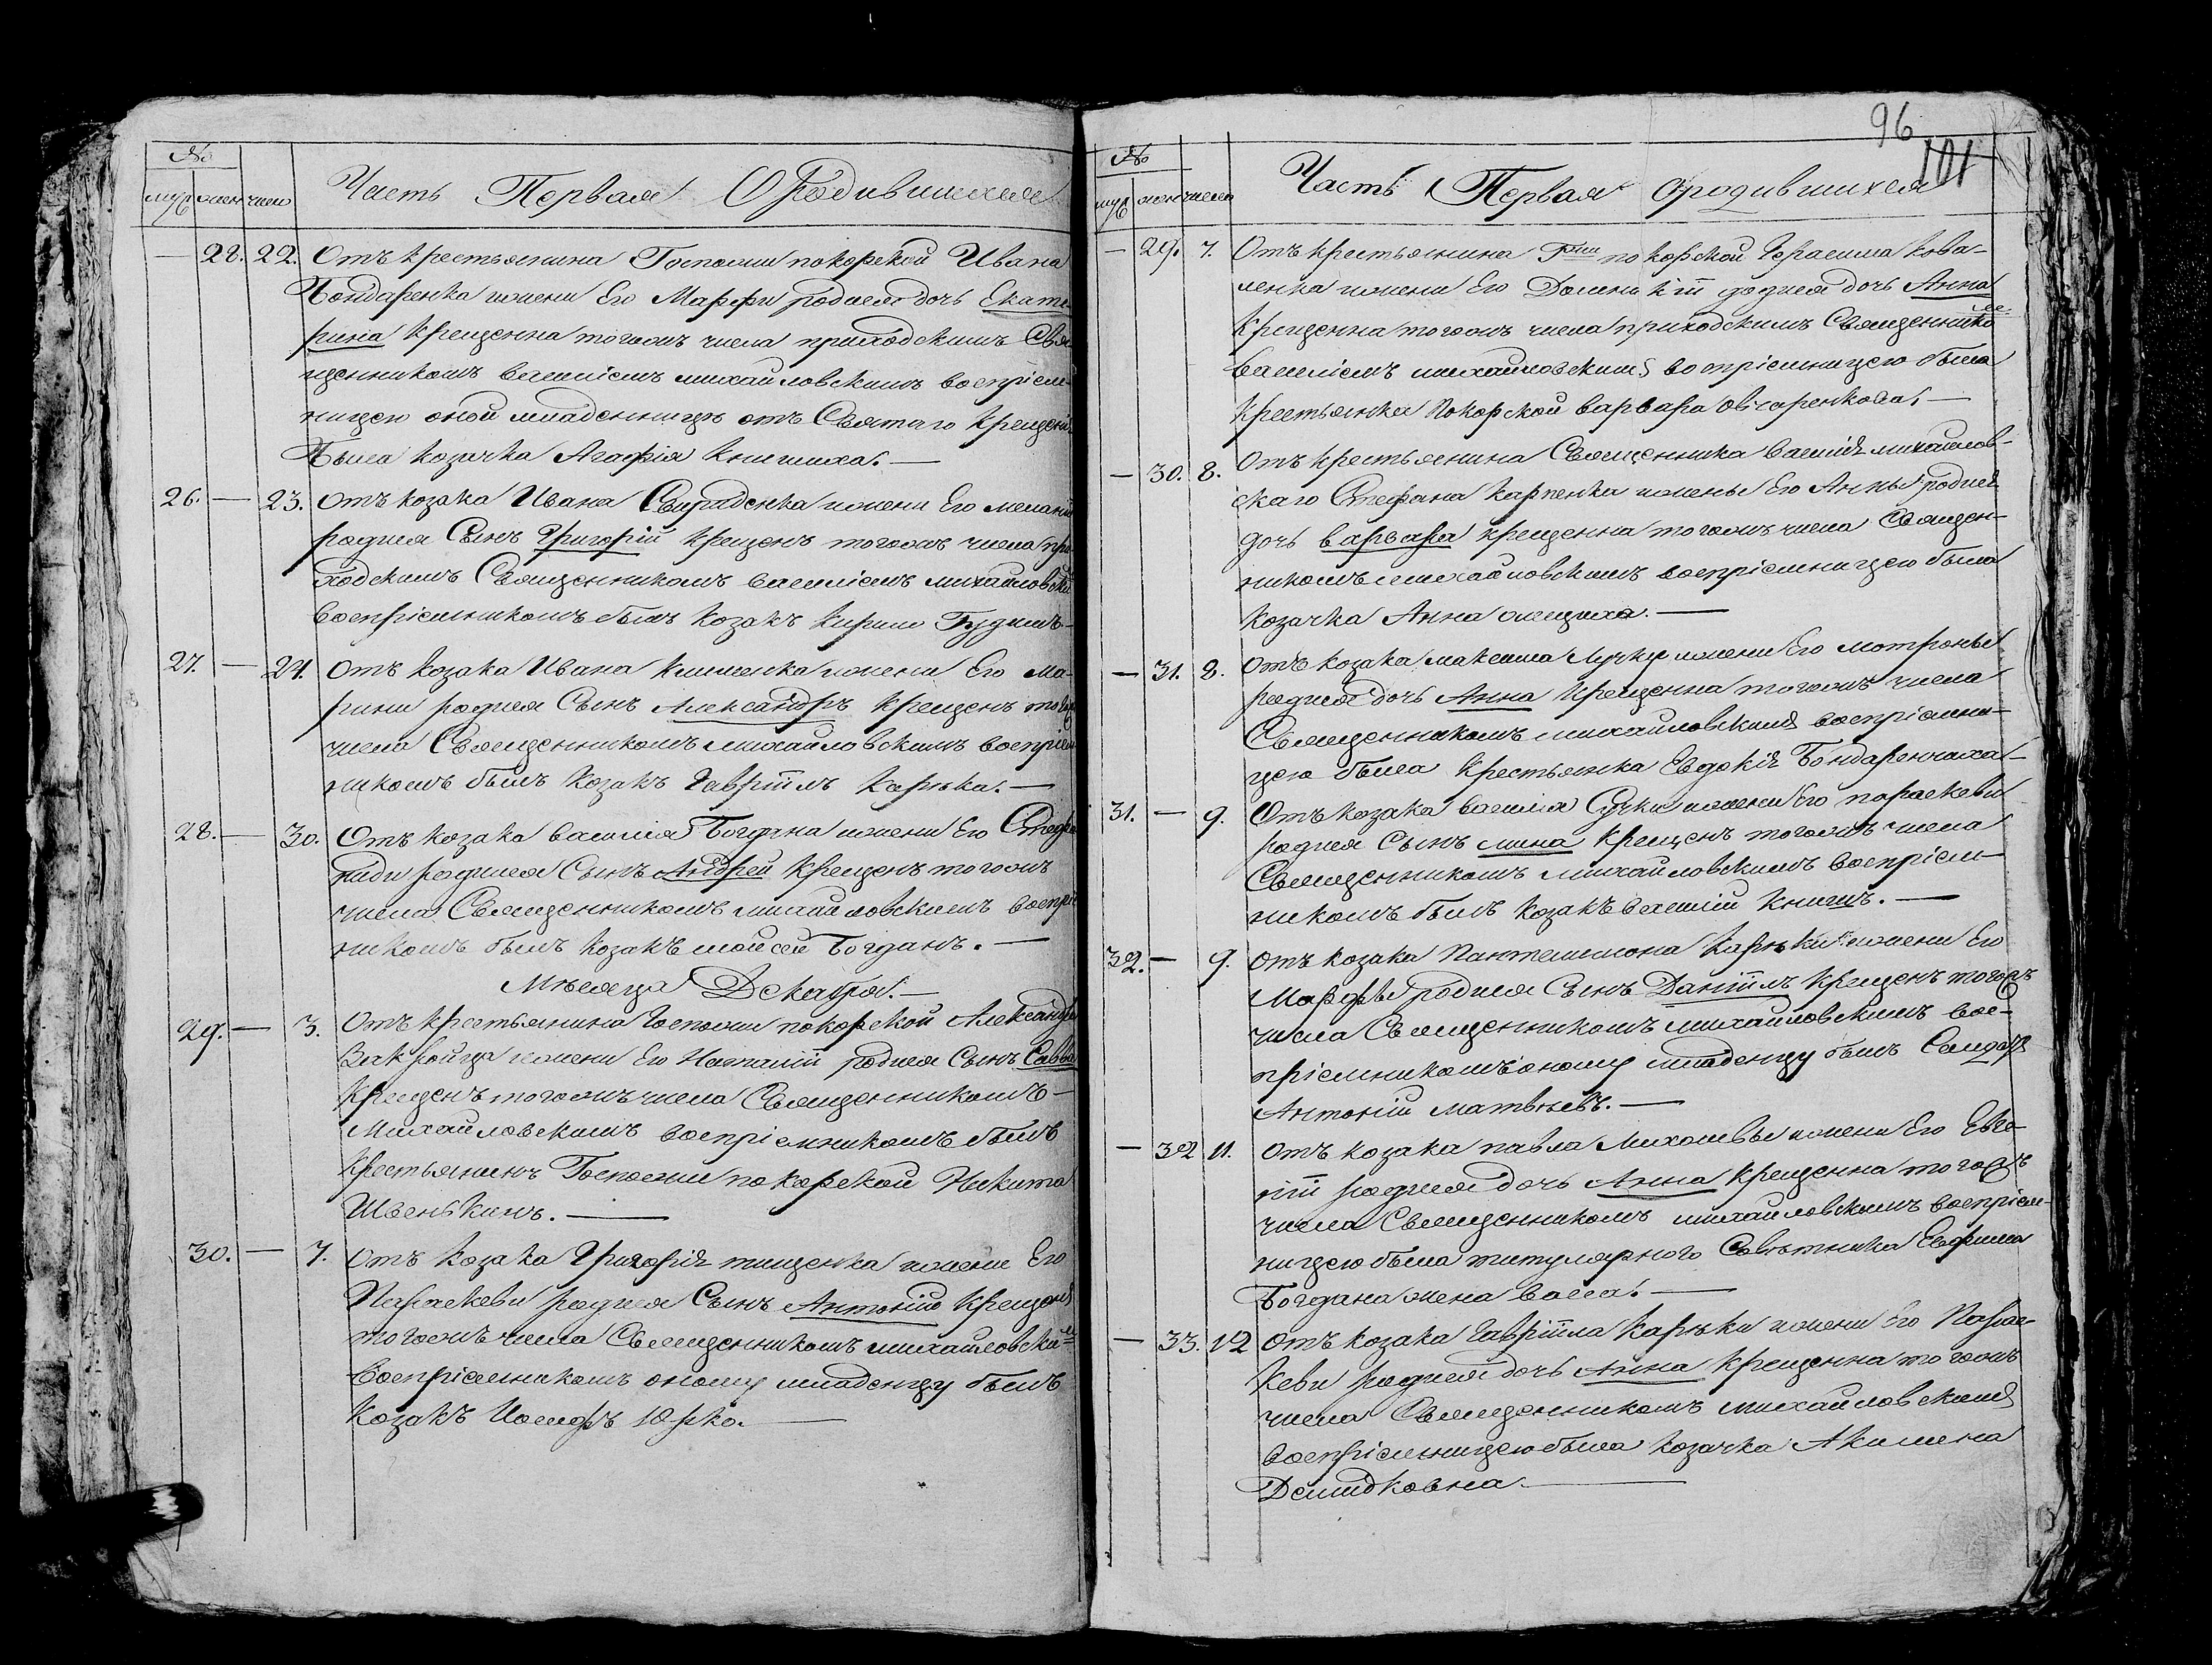 №
муж жен число
Часть Первая О Родившихся
— 28. 22. Отъ крестьянина Госпожи покорской Ивана
Бондаренка ижени Его Марфи родися дочь Екате-
рина крещенна тогожъ числа приходскимъ Свя-
щенникомъ василіемъ михайловскимъ воспріем-
ницею оной младенницы отъ Святаго крещені
Была козачка Агафія книшиха. —
26. — 23. Отъ козака Ивана Свириденка ижени Его мелані
родися Сынъ Григорій крещенъ тогожъ числа при
ходскимъ Священникомъ василіемъ михайловски
воспріемникомъ былъ козакъ кирило
27. — 24. Отъ козака Ивана ижени Его Ма-
рини родися Сынъ Александръ крещенъ того
числа Священникомъ михайловскимъ воспріем
никомъ былъ козакъ гавріилъ Карѣка. —
28. — 30. Отъ козака василія Богдана ижени Его Стефа
ниди родися Сынъ Андрей крещенъ тогожъ
числа Священникомъ михайловскимъ воспрі
никомъ былъ козакъ мойсей Богданъ. —
Мѣсяца Декабря. —
29. — 3. Отъ крестьянина госпожи покорской Александра
ижени Его Наталіи родися Сынъ Савва
крещенъ тогожъ числа Священникомъ —
Михайловскимъ воспріемникомъ былъ
Крестьянинъ Госпожи покорской Никита
Швенькинъ. —
30. — 7. Отъ козака Григорія тищенка ижени Его
Параскеви родися Сынъ Антоній крещенъ
тогожъ числа Священникомъ михайловски
Воспріемникомъ оному младенцу былъ
Козакъ Иосифъ Юрко. —
96
101
№
муж жен число
Часть Первая О родившихся
— 29. 7. Отъ крестьянина Гжи покорской Герасима кова-
ленка ижени Его родися дочь Анна
крещенна тогожъ числа приходскимъ Священнико
василіемъ михайловскимъ воспріемницею была
крестьянка покорской варвара овчаренкова. —
— 30. 8. Отъ крестьянина Священника василія михайлов-
скаго Стефана карпенка иженье Его Анны родися
дочь варвара крещенна тогожъ числа Священ-
никомъ михайловскимъ воспріемницею была
козачка Анна —
— 31. 8. Отъ козака максима Лучки ижени Его мотроны
родися дочь Анна крещенна тогожъ числа
Священникомъ михайловскимъ воспріемни-
цею была крестьянка Евдокія Бондаренчиха. —
31. — 9. Отъ козака василія ижени Его параскеви
родися Сынъ мина крещенъ тогожъ числа
Священникомъ михайловскимъ воспріем-
никомъ былъ козакъ василій книшъ. —
32. — 9. Отъ козака Пантелимона Карѣки ижени Его
Марфы родися Сынъ Даніилъ крещенъ тогожъ
числа Священникомъ михайловскимъ вос-
пріемникомъ оному младенцу былъ Солдатъ
Антоній матвѣевъ. —
— 32 11. Отъ козака павла ижени Его Евге-
ніи родися дочь Анна крещенна тогожъ
числа Священникомъ михайловскимъ воспріем-
ницею была титулярного Совѣтника Евфима
Богдана жена васса. —
— 33. 12 Отъ козака гавріила Карѣки ижени Его Парас-
кеви родися дочь Анна крещенна тогожъ
числа Священникомъ михайловскимъ
воспріемницею была козачка Акилина
Демидковна. —